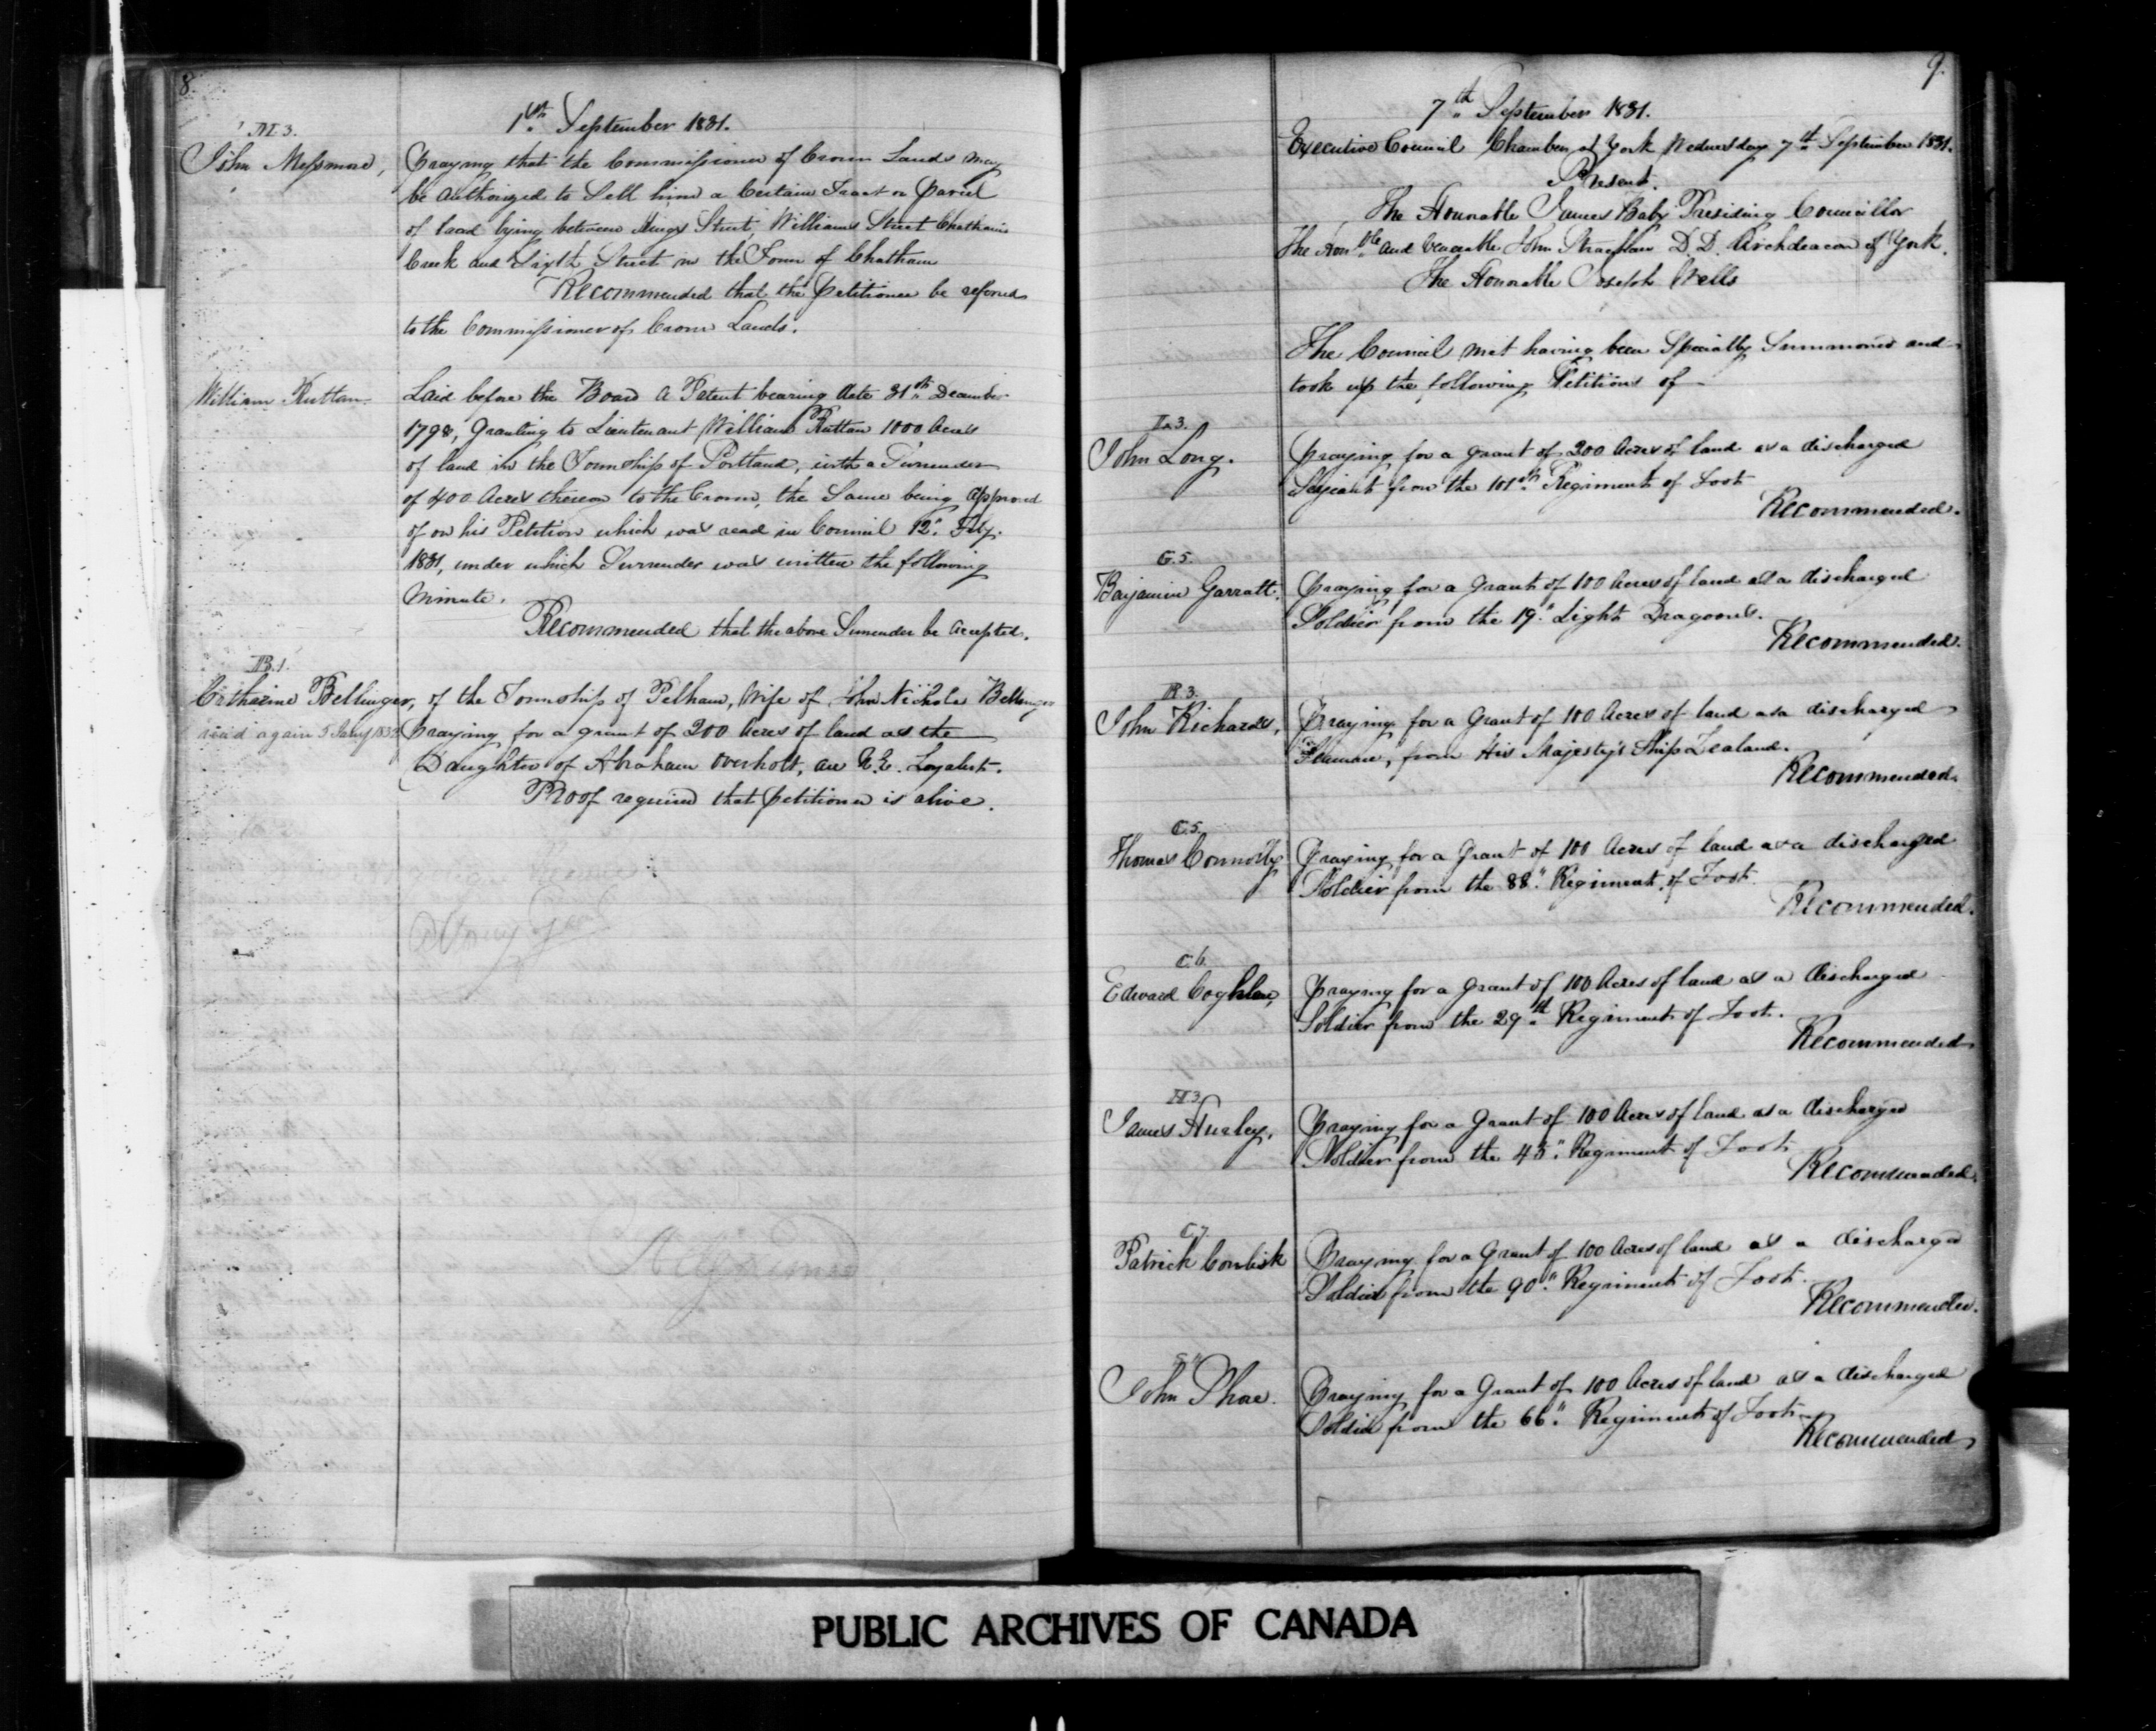 8.
1st September 1831.
M.3.
John Messmore, Praying that the Commissioner of Crown Lands may
be authorized to Sell him a Certain Tract or parcel
of land lying between Kings Street, Williams Street Chathams
Creek and Sixth Street in the Town of Chatham
Recommended that the Petitioner be refered
to the Commissioner of Crown Lands.
William Ruttan. Laid before the Board a Patent bearing date 31st December
1798, Granting to Lieutenant William Ruttan 1000 Acres
of land in the Township of Portland, with a Surrender
of 400 Acres thereon to the Crown, the Same being approved
of on his Petition which was read in Council 12" Feby.
1831, under which Surrender was written the following
Minute.
Recommended that the above Surrender be accepted.
B.1.
Catharine Bellinger, of the Township of Pelham, Wife of John Nicholas Bellinger
read again 5 Jany 1832 Praying for a grant of 200 Acres of land as the
Daughter of Abraham Overholt, an U.E. Loyalist.
Proof required that petitioner is alive.
9.
7th September 1831.
Executive Council Chamber at York Wednesday 7th September 1831.
Present.
The Honorable James Baby Presiding Councillor
The Honble and Venerable John Strachan D.D. Archdeacon of York.
The Honorable Joseph Wells
The Council met having been Specially Summoned and
took up the following Petitions of
L.3.
John Long. Praying for a grant of 200 Acres of land as a discharged
Serjeant from the 101st Regiment of Foot
Recommended.
G.5.
Benjamin Garratt. Praying for a Grant of 100 Acres of land as a discharged
Soldier from the 19" Light Dragoons.
Recommended.
R.3.
John Richards, Praying for a Grant of 100 Acres of land as a discharged
Seaman, from His Majesty's Ship Zealand.
Recommended.
C.5.
Thomas Connolly Praying for a Grant of 100 Acres of land as a discharged
Soldier from the 88" Regiment of Foot.
Recommended.
C.6.
Edward Coghlan, Praying for a grant of 100 Acres of land as a discharged
Soldier from the 29th Regiment of Foot.
Recommended
H.3.
James Hurley, Praying for a Grant of 100 Acres of land as a discharged
Soldier from the 45" Regiment of Foot
Recommended.
C.7.
Patrick Conlisk Praying for a Grant of 100 Acres of land as a discharged
Soldier from the 90" Regiment of Foot.
Recommended.
John Shae. Praying for a Grant of 100 Acres of land as a discharged
Soldier from the 66" Regiment of Foot.
Recommended
PUBLIC ARCHIVES OF CANADA